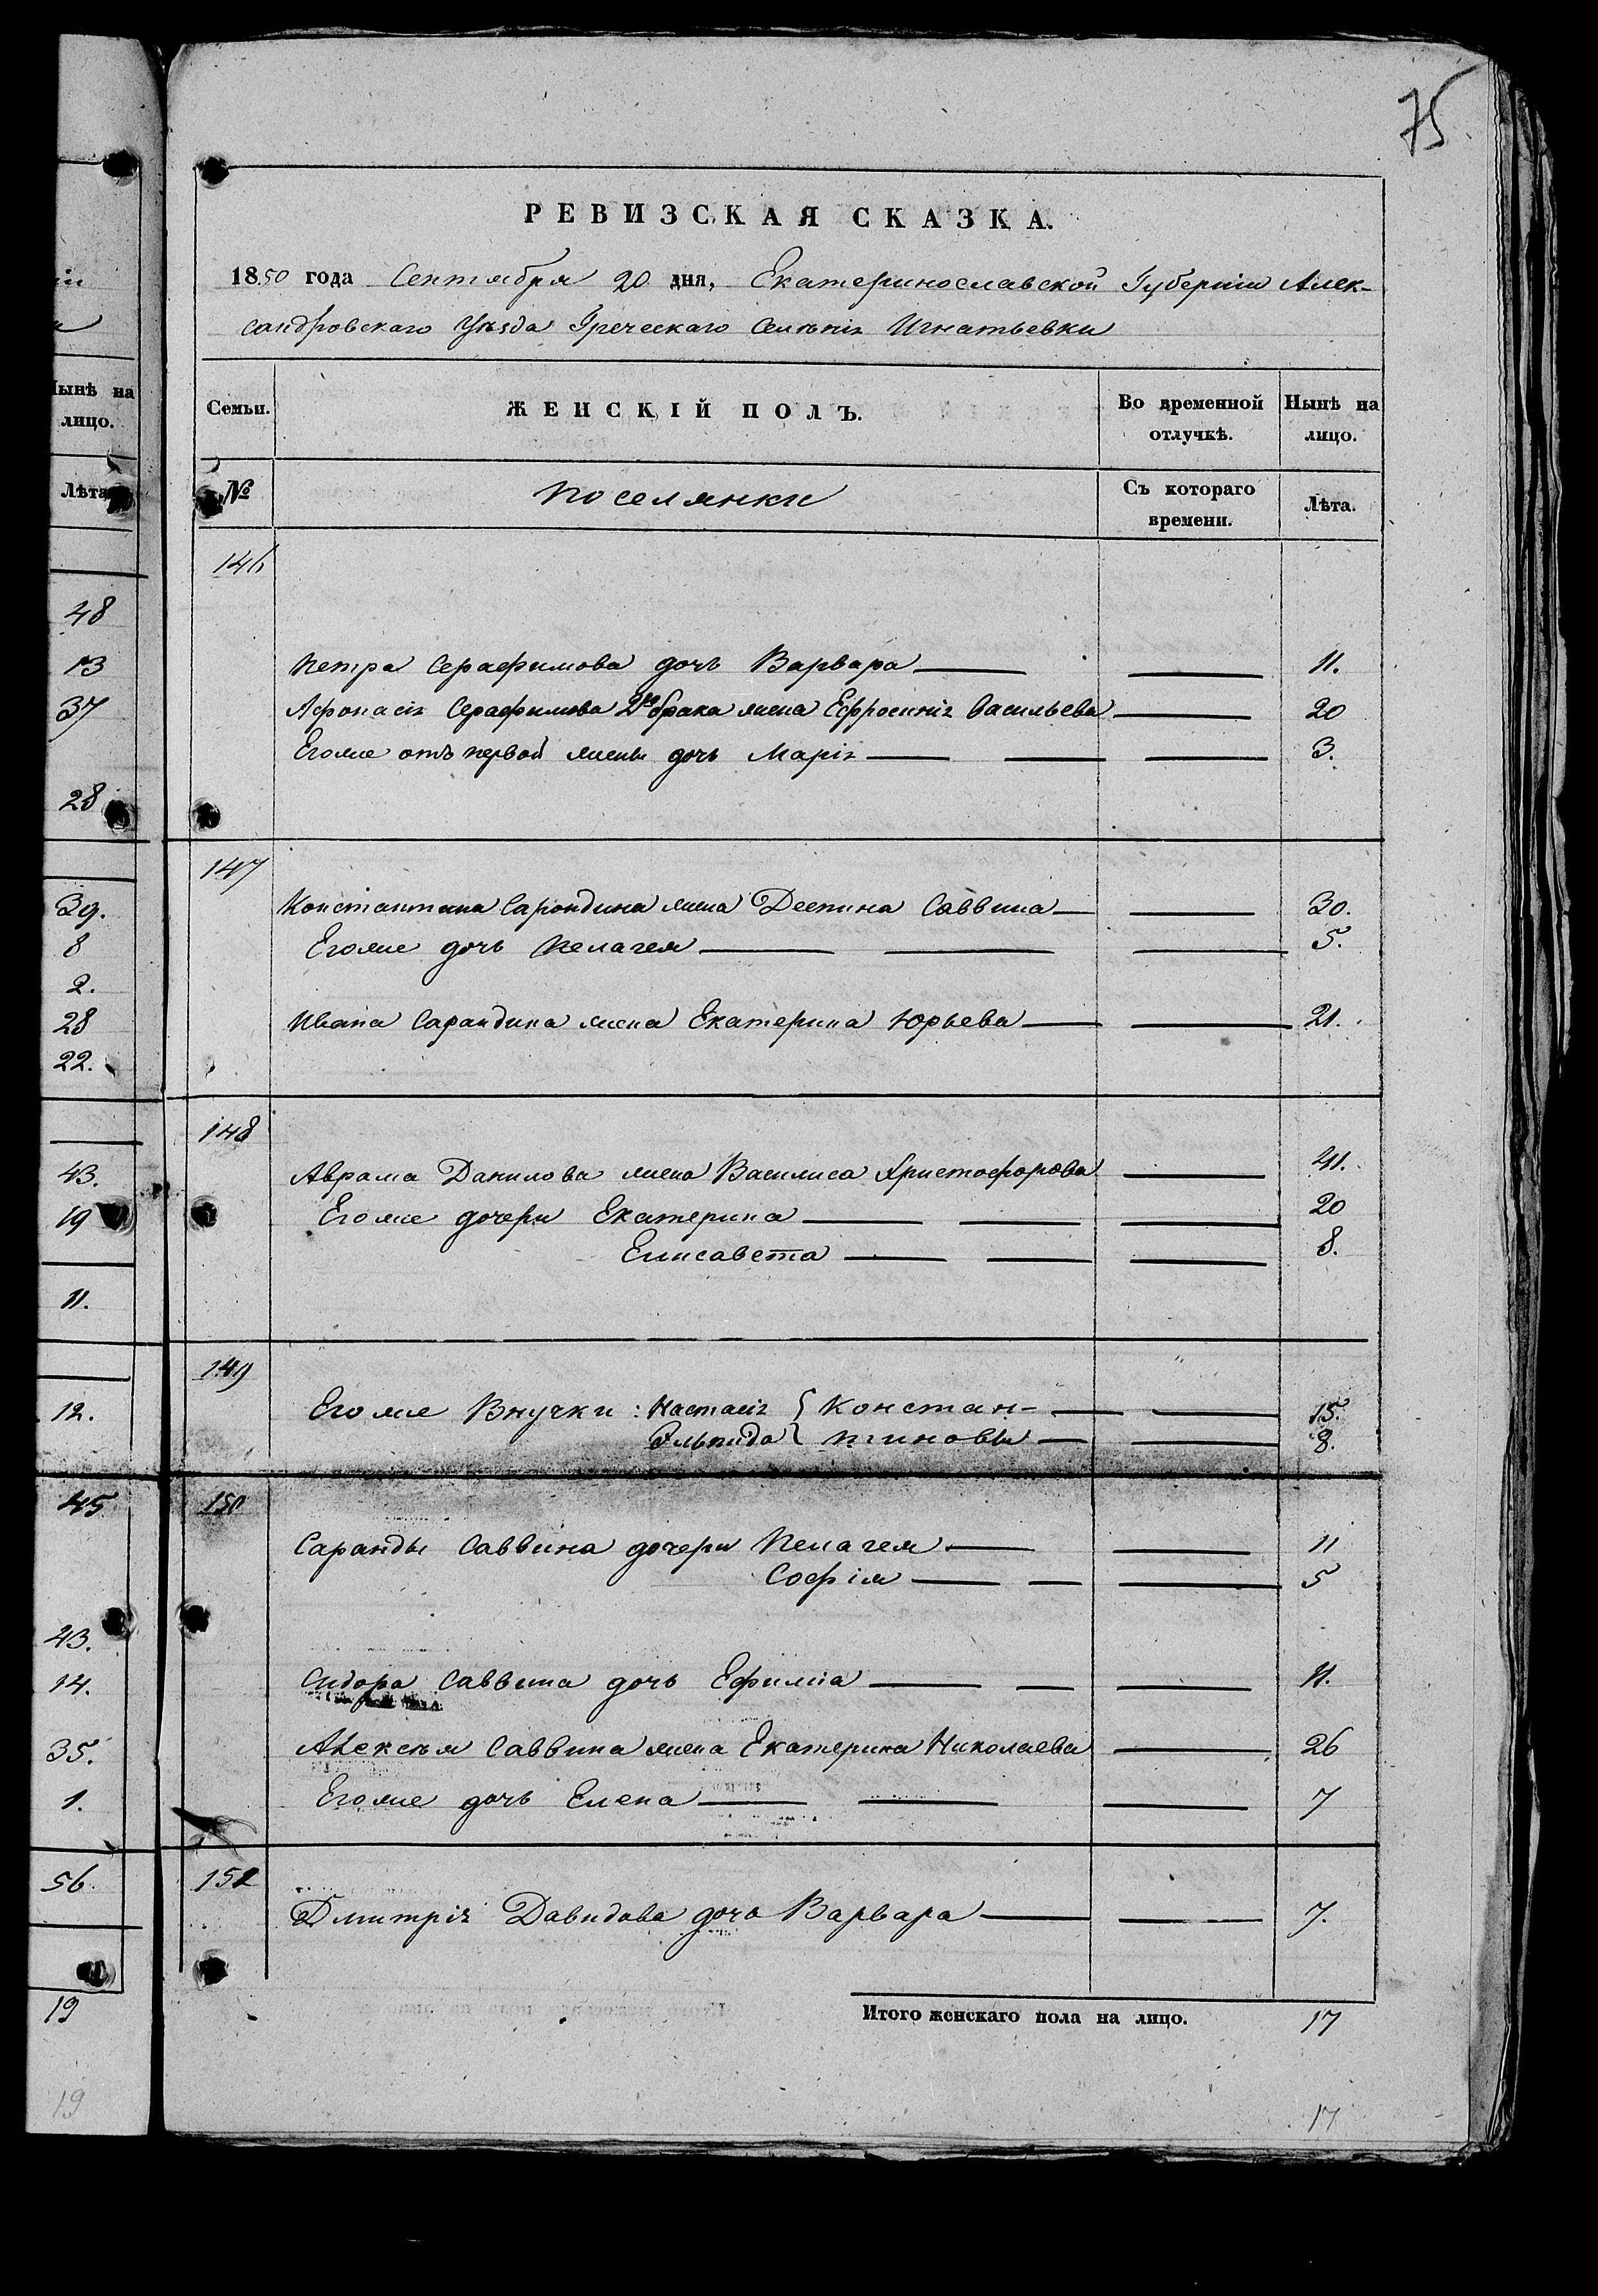 75
РЕВИЗСКАЯ СКАЗКА.
1850 года Сентября 20 дня, Екатеринославской Губерніи Алек-
сандровскаго Уѣзда Греческаго Селѣнія Игнатьевки
Семьи. ЖЕНСКІЙ ПОЛЪ. Во временной отлучкѣ. Нынѣ на лицо.
№ Поселянки Съ котораго времени. Лѣта.
146
Петра Серафимова дочь Варвара 11.
Афонасія Серафимова 2го брака жена Ефросинія Васильева 20
Егоже отъ первой жены дочь Марія 3.
147
Константина Сарондина жена Деспина Саввина 30.
Егоже дочь Пелагея 5.
Ивана Сарандина жена Екатерина Юрьева 21.
148
Аврама Данилова жена Василиса Христофорова 41.
Егоже дочери Екатерина 20
Елисавета 8.
149
Егоже Внучки: Настасія } Констан- 15.
Эльпида } тиновы 8.
150
Саранды Саввина дочери Пелагея 11
Софія 5
Сидора Саввина дочь Ефиміа 11.
Алексѣя Саввина жена Екатерина Николаева 26
Егоже дочь Елена 7
152
Дмитрія Давидова дочь Варвара 7.
Итого женскаго пола на лицо. 17
17
Нынѣ на
лицо.
Лѣта
48
13
37
28
39.
8
2.
28
22.
43.
19
11.
12.
45
43.
14.
35.
1.
56.
19
19